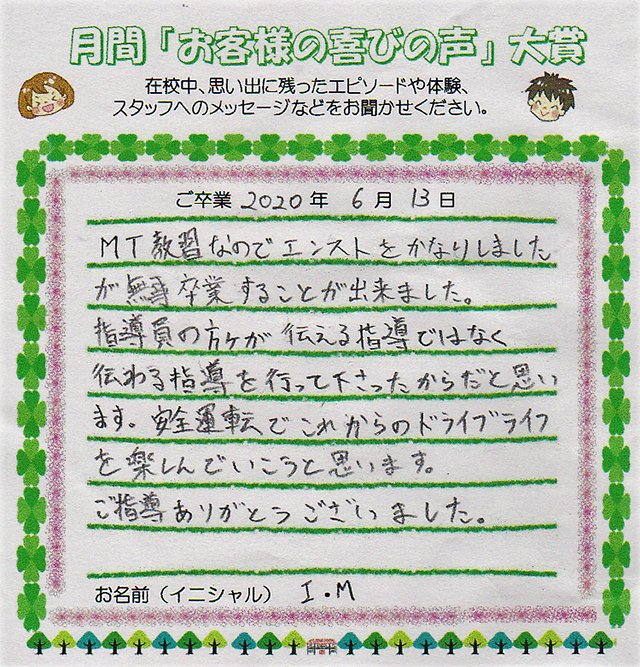 月間「お客様の喜びの声」大賞
在校中、思い出に残ったエピソードや体験、
スタッフへのメッセージなどをお聞かせください。
ご卒業 2020年 6月 13日
MT教習なのでエンストをかなりしました
が無事卒業することが出来ました。
指導員の方々が伝える指導ではなく
伝わる指導を行って下さったからだと思い
ます。安全運転でこれからのドライブライフ
を楽しんでいこうと思います。
ご指導ありがとうございました。
お名前（イニシャル） I・M